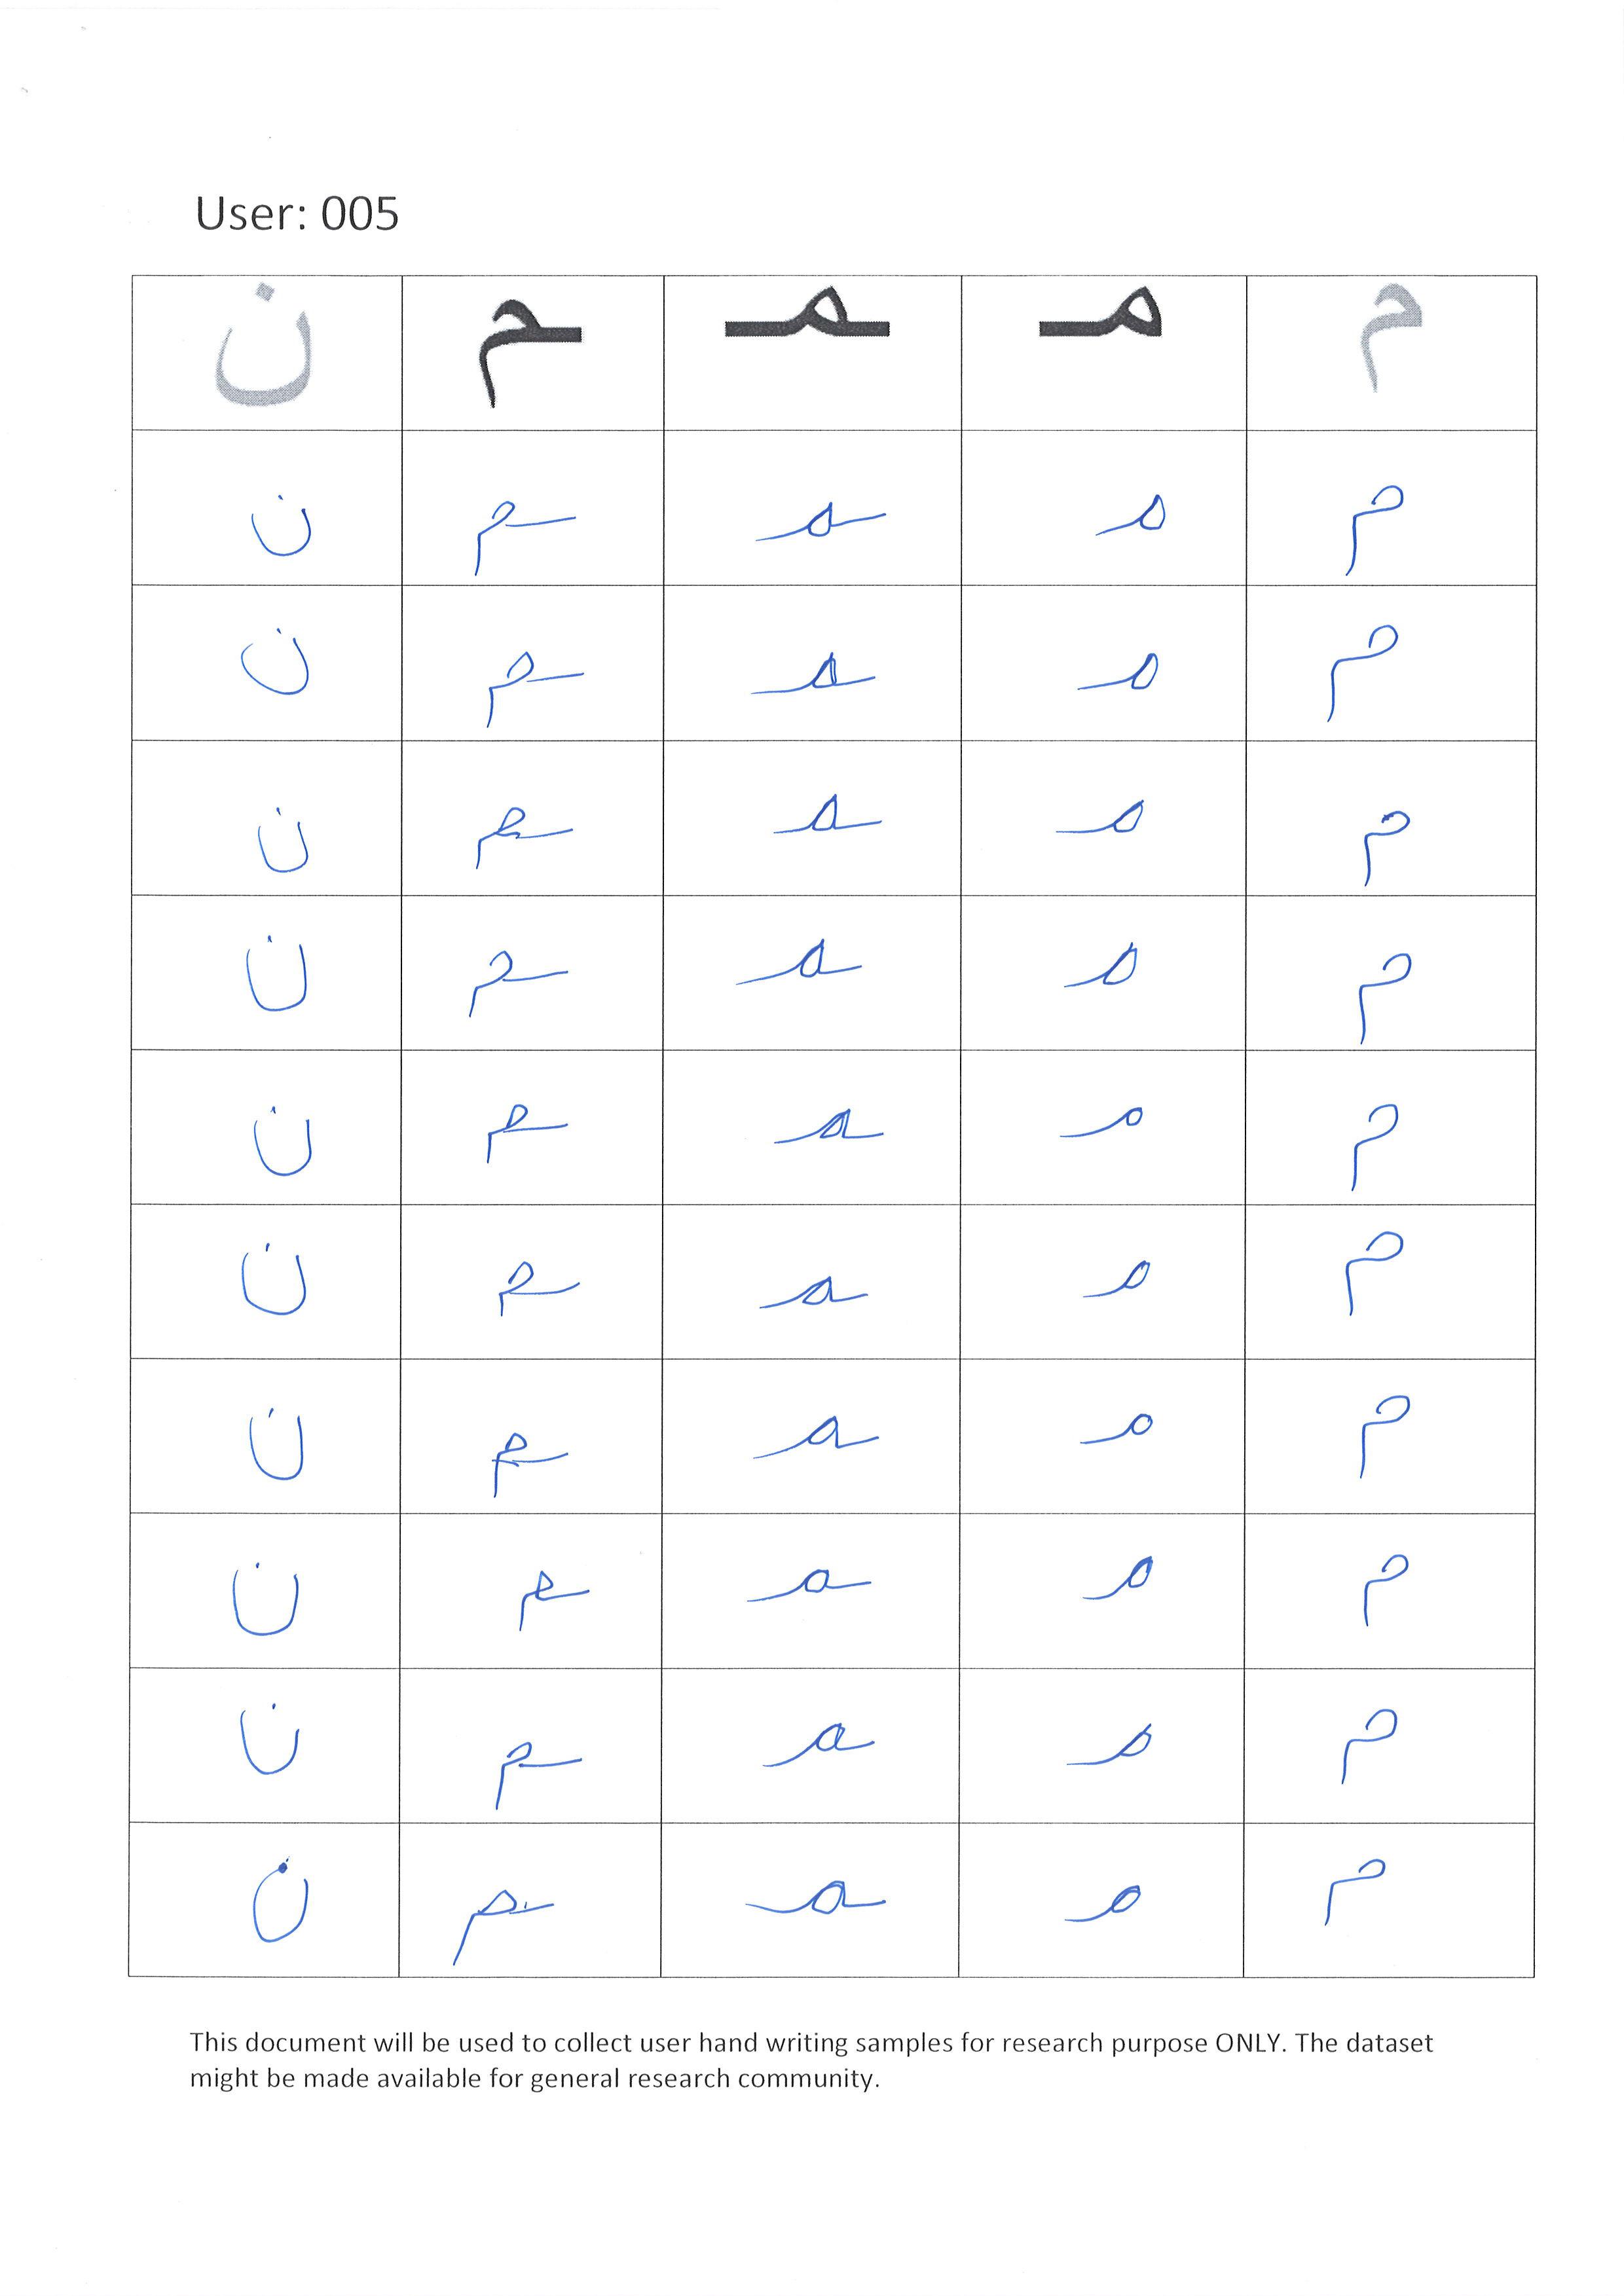 User: 005
م مـ ـمـ ـم ن
م مـ ـمـ ـم ن
م مـ ـمـ ـم ن
م مـ ـمـ ـم ن
م مـ ـمـ ـم ن
م مـ ـمـ ـم ن
م مـ ـمـ ـم ن
م مـ ـمـ ـم ن
م مـ ـمـ ـم ن
م مـ ـمـ ـم ن
م مـ ـمـ ـم ن
This document will be used to collect user hand writing samples for research purpose ONLY. The dataset
might be made available for general research community.